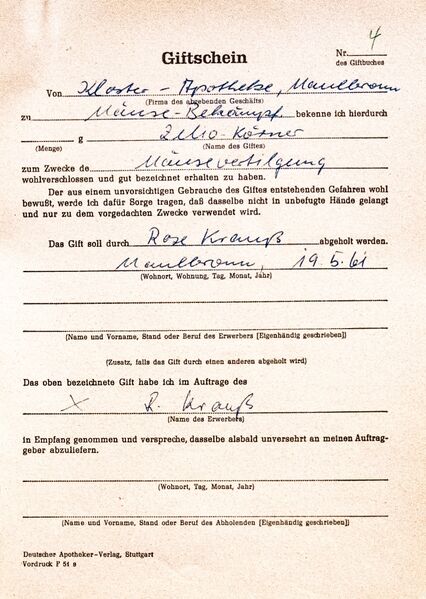 Giftschein
Nr. 4
des Giftbuches
Von Kloster-Apotheke, Maulbronn
(Firma des abgebenden Geschäfts)
zu Mäuse-Bekämpf. bekenne ich hierdurch
g Zelio-Körner
(Menge) (Name des Giftes)
zum Zwecke de Mäusevertilgung
wohlverschlossen und gut bezeichnet erhalten zu haben.
Der aus einem unvorsichtigen Gebrauche des Giftes entstehenden Gefahren wohl
bewußt, werde ich dafür Sorge tragen, daß dasselbe nicht in unbefugte Hände gelangt
und nur zu dem vorgedachten Zwecke verwendet wird.
Das Gift soll durch Rose Krauß abgeholt werden.
Maulbronn, 19.5.61
(Wohnort, Wohnung, Tag, Monat, Jahr)
(Name und Vorname, Stand oder Beruf des Erwerbers [Eigenhändig geschrieben])
(Zusatz, falls das Gift durch einen anderen abgeholt wird)
Das oben bezeichnete Gift habe ich im Auftrage des
X R. Krauß
(Name des Erwerbers)
in Empfang genommen und verspreche, dasselbe alsbald unversehrt an meinen Auftrag-
geber abzuliefern.
(Wohnort, Tag, Monat, Jahr)
(Name und Vorname, Stand oder Beruf des Abholenden [Eigenhändig geschrieben])
Deutscher Apotheker-Verlag, Stuttgart
Vordruck P 51 s